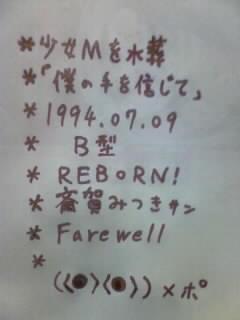 *少女Mを水葬
*「僕の手を信じて」
*1994.07.09
* B型
* REBORN!
* 斎賀みつきサン
* Farewell
*
(《◉》《◉》)×ポ